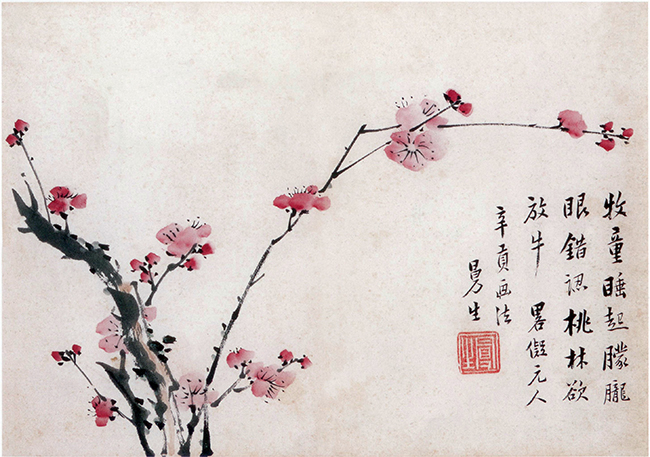 牧童睡起朦朧
眼錯認桃林欲
放牛 畧儗元人
辛貢画法
生